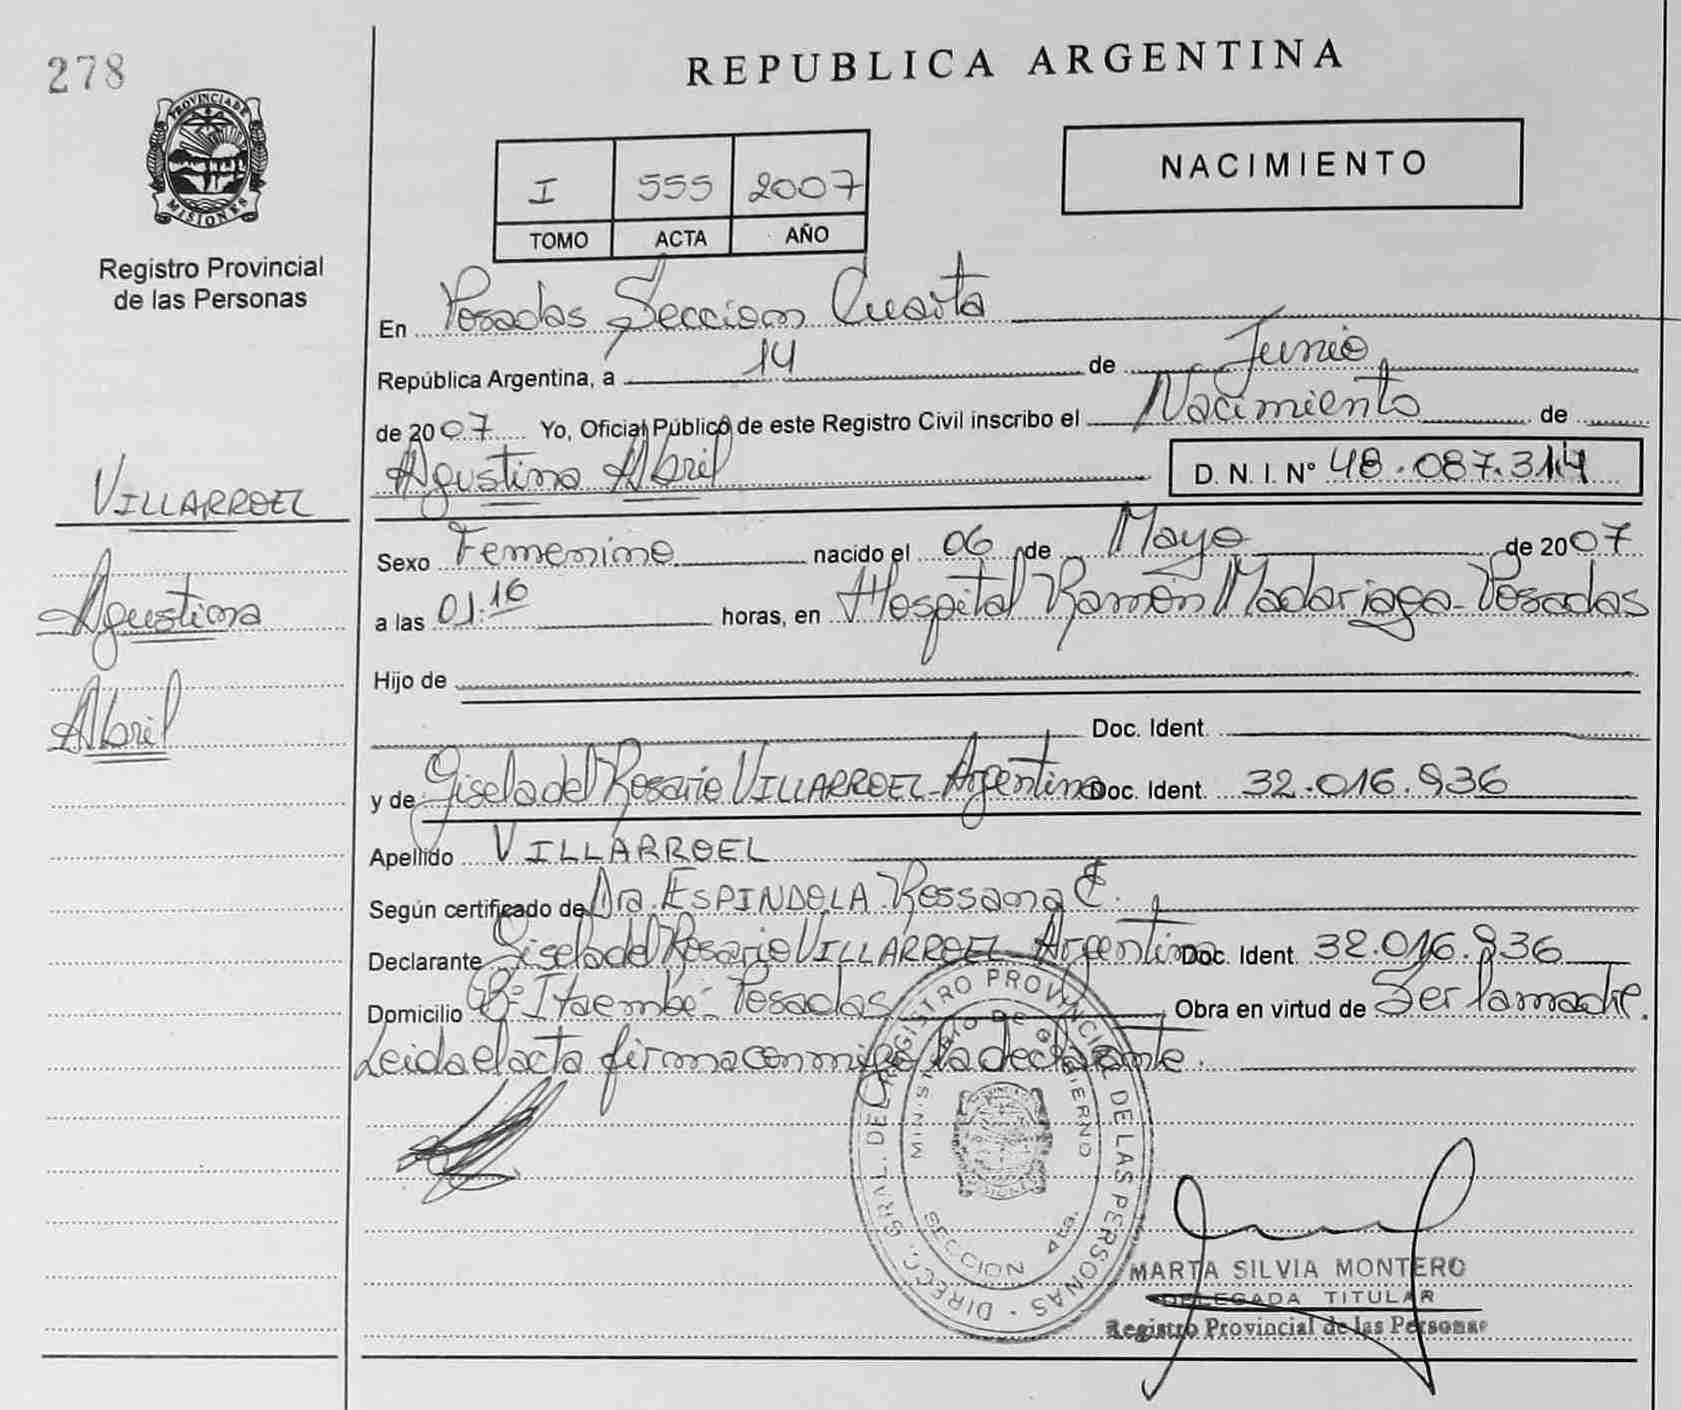 278
REPUBLICA ARGENTINA
PROVINCIA DE
MISIONES
Registro Provincial
de las Personas
I 555 2007
TOMO ACTA AÑO
NACIMIENTO
En Posadas Seccion Cuarta
República Argentina, a 14 de Junio
de 2007 Yo, Oficial Público de este Registro Civil inscribo el Nacimiento de
Agustina Abril D. N. I. Nº 48.087.314
VILLARROEL
Agustina
Abril
Sexo Femenino nacido el 06 de Mayo de 2007
a las 01:16 horas, en Hospital Ramón Madariaga - Posadas
Hijo de
Doc. Ident.
y de Gisela del Rosario VILLARROEL - Argentina Doc. Ident. 32.016.936
Apellido VILLARROEL
Según certificado de Dra. ESPINDOLA Rossana E.
Declarante Gisela del Rosario VILLARROEL Argentina Doc. Ident. 32.016.936
Domicilio Bº Itaembé - Posadas Obra en virtud de Ser la madre.
Leida el acta firma conmigo la declarante.
DIRECC. GRAL. DEL REGISTRO PROVINCIAL DE LAS PERSONAS
MINISTERIO DE GOBIERNO
SECCION 4ta.
MARTA SILVIA MONTERO
DELEGADA TITULAR
Registro Provincial de las Personas